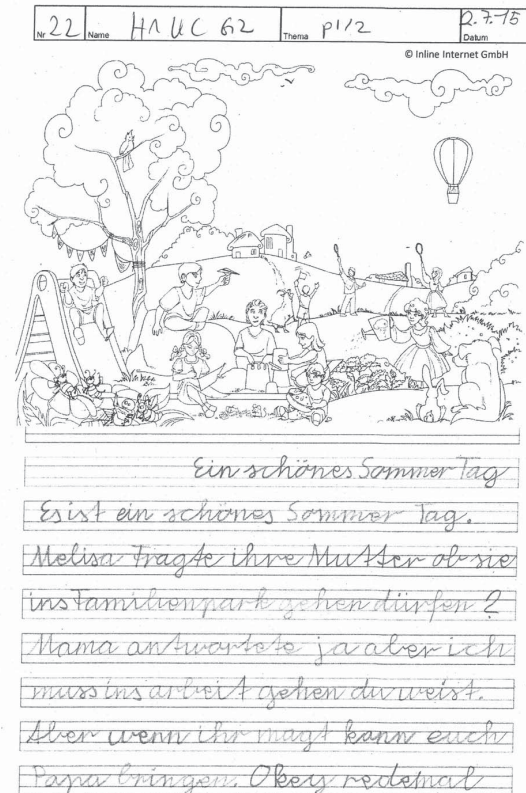 Nr 22 Name HNUC G2 Thema P1/2 Datum 2.7.15
© Inline Internet GmbH
Ein schönes Sommer Tag
Es ist ein schönes Sommer Tag.
Melisa Fragte ihre Mutter ob sie
ins Familienpark gehen dürfen ?
Mama antwortete ja aber ich
muss ins arbeit gehen du weist.
Aber wenn ihr magt kann euch
Papa bringen. Okey redemal